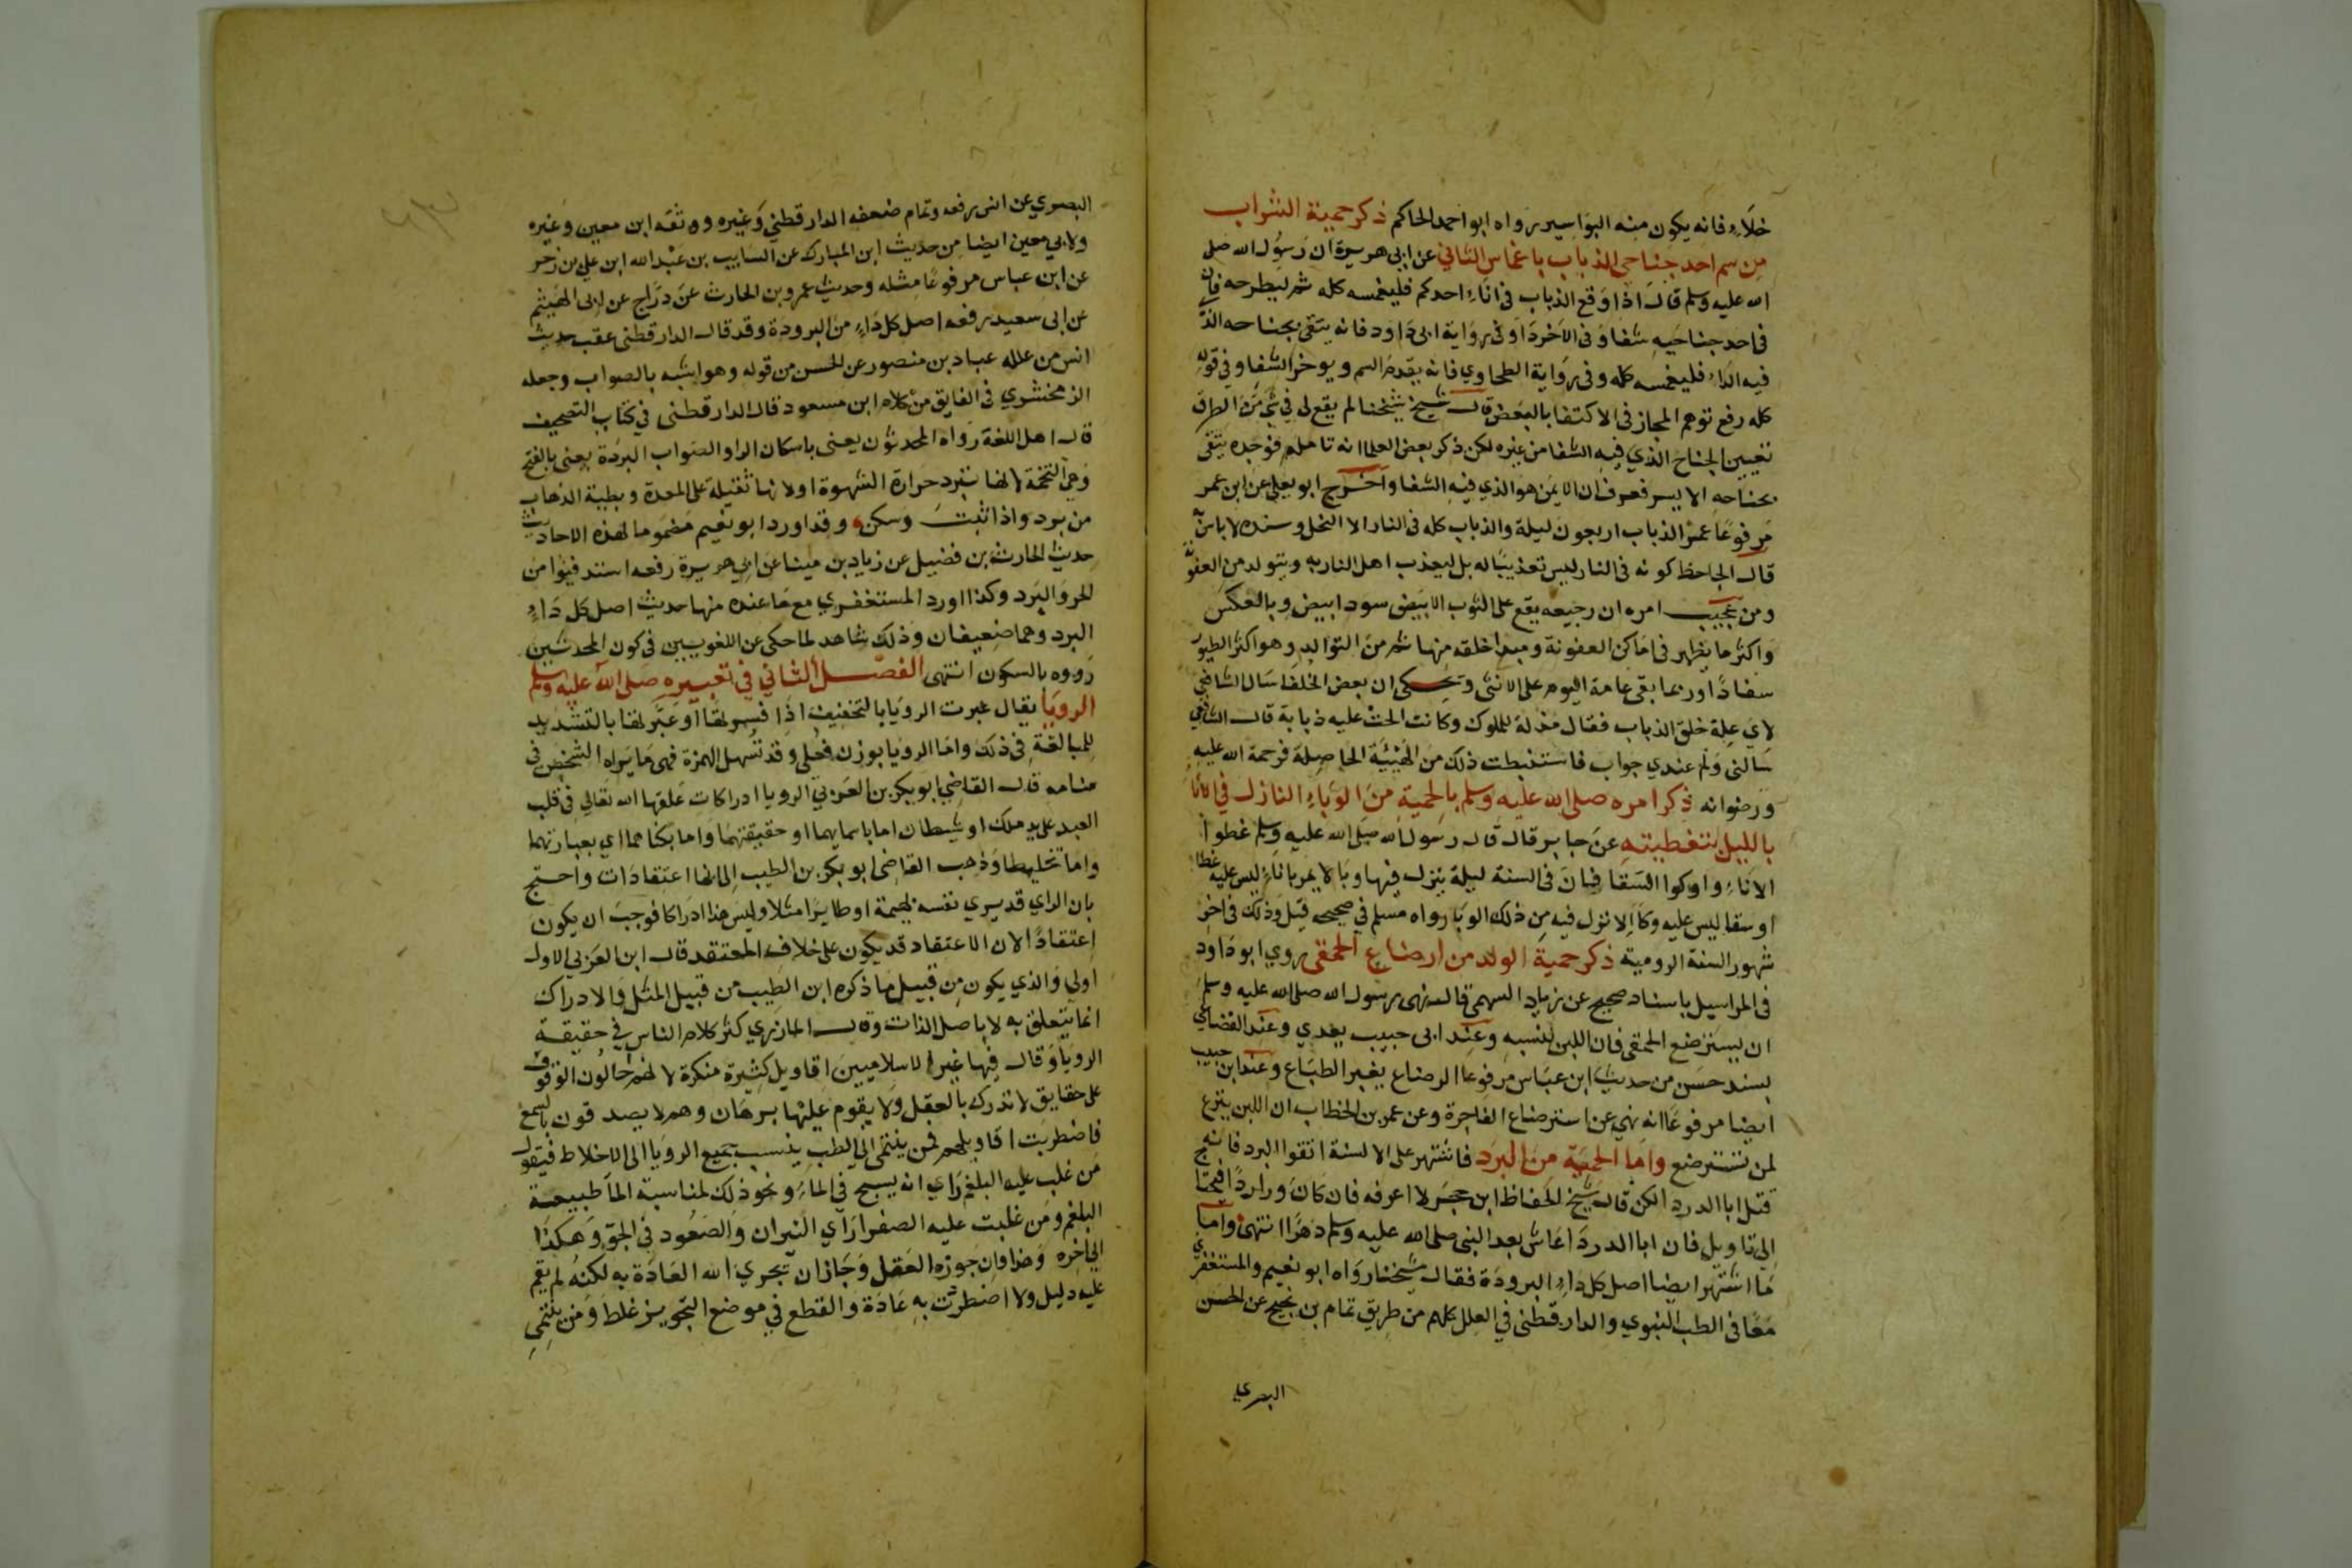 خلاء فانه يكون منه البواسير رواه ابو احمد الحاكم ذكر حمية الشراب
من سم احد جناحي الذباب باغماس الثاني عن ابي هريرة ان رسول الله صلى
الله عليه وسلم قال اذا وقع الذباب في اناء احدكم فليغمسه كله ثم ليطرحه فان
في احد جناحيه شفا وفي الاخر دا وفي رواية ابي داود فانه يتقى بجناحه الذي
فيه الداء فليغمسه كله وفي رواية الطحاوي فانه يقدم السم ويوخر الشفا وفي قوله
كله رفع توهم المجاز في الاكتفا بالبعض قال شيخ شيخنا لم يقع لي في شي من الطرق
تعيين الجناح الذي فيه الشفا من غيره لكن ذكر بعض العلما انه تامله فوجده يتقى
بجناحه الايسر فعرف ان الايمن هو الذي فيه الشفا واخرج ابو يعلى عن ابن عمر
مرفوعا عمر الذباب اربعون ليلة والذباب كله في النار الا النحل وسنده لاباس به
قال الجاحظ كونه في النار ليس تعذيبا له بل ليعذب اهل النار به ويتولد من العفونة
ومن عجيب امره ان رجيعه يقع على الثوب الابيض سودا بيض وبالعكس
واكثر ما يظهر في اماكن العفونة ومبدا خلقه منها ثم من التوالد وهو اكثر الطيور
سفادا وربما بقى عامة اليوم على الانثى وحكى ان بعض الخلفا سال الشافعي
لاي علة خلق الذباب فقال مذلة للملوك وكانت الحت عليه ذبابة قال الشافعي
سالني ولم عندي جواب فاستنبطت ذلك من الهيئة الحاصلة فرحمة الله عليه
ورضوانه ذكر امره صلى الله عليه وسلم بالحمية من الوباء النازل في الاناء
بالليل بتغطيته عن جابر قال قال رسول الله صلى الله عليه وسلم غطوا
الاناء واوكوا السقا فان في السنة ليلة ينزل فيها وبا لا يمر باناء ليس عليه غطا
او سقا ليس عليه وكاء الا نزل فيه من ذلك الوبا رواه مسلم في صحيحه قيل وذلك في اخر
شهور السنة الرومية ذكر حمية الولد من ارضاع الحمقى روي ابو داود
في المراسيل باسناد صحيح عن زياد السهمي قال نهى رسول الله صلى الله عليه وسلم
ان يسترضع الحمقى فان اللبن يشبه وعند ابى حبيب يعدي وعند القضاعي
بسند حسن من حديث ابن عباس مرفوعا الرضاع يغير الطباع وعند ابن حبيب
ايضا مرفوعا انه نهي عن استرضاع الفاجرة وعن عمر بن الخطاب ان اللبن ينزع
لمن تسترضع واما الحمية من البرد فاشتهر على الالسنة اتقوا البرد فانه
قتل ابا الدردا لكن قال شيخ الحفاظ ابن حجر لا اعرفه فان كان واردا فيحتاج
الى تاويل فان ابا الدردا عاش بعد النبي صلى الله عليه وسلم دهرا انتهى واما
ما اشتهر ايضا اصل كل داء البرودة فقال شيخنا رواه ابو نعيم والمستغفري
معا في الطب النبوي والدارقطني في العلل كلهم من طريق تمام بن نجيح عن الحسن
البصري
البصري عن انس رفعه وتمام ضعفه الدارقطني وغيره ووثقه ابن معين وغيره
ولابي معين ايضا من حديث ابن المبارك عن السايب بن عبد الله ابن علي بن زحر
عن ابن عباس مرفوعا مثله وحديث عمرو بن الحارث عن دراج عن ابي الهيثم
عن ابي سعيد رفعه اصل كل داء من البرودة وقد قال الدارقطني عقب حديث
انس من علله عباد بن منصور عن الحسن من قوله وهو اشبه بالصواب وجعله
الزمخشري في الفايق من كلام ابن مسعود قال الدارقطني في كتاب التصحيف
قال اهل اللغة رواه المحدثون يعني باسكان الراء والصواب البردة يعني بالفتح
وهي التخمة لانها تبرد حرارة الشهوة او لانها ثقيلة على المعدة وبطيئة الذهاب
من برد واذا ثبت وسكن وقد اورد ابو نعيم مضموما لهذه الاحاديث
حديث الحارث بن فضيل عن زياد بن مينا عن ابي هريرة رفعه استدفيوا من
الحر والبرد وكذا اورد المستغفري مع ما عنده منها حديث اصل كل داء
البرد وهما ضعيفان وذلك شاهد لما حكي عن اللغويين في كون المحدثين
رووه بالسكون انتهى الفصل الثاني في تعبيره صلى الله عليه وسلم
الرويا يقال عبرت الرويا بالتخفيف اذا فسرتها وعبرتها بالتشديد
للمبالغة في ذلك واما الرويا بوزن فعلى وقد تسهل الهمزة فهي ما يراه الشخص في
منامه قال القاضي ابو بكر بن العربي الرويا ادراكات علقها الله تعالى في قلب
العبد على يد ملك او شيطان اما باسمايها او حقيقتهما واما بكناهما اي بعبارتهما
واما تخليطا وذهب القاضي ابو بكر بن الطيب الى انها اعتقادات واحتج
بان الراي قد يرى نفسه بهيمة او طايرا مثلا وليس هذا ادراكا فوجب ان يكون
اعتقادا لان الاعتقاد قد يكون على خلاف المعتقد قال ابن العربي الاول
اولى والذي يكون من قبيل ما ذكره ابن الطيب من قبيل المثل والادراك
انما يتعلق به لا باصل الذات وقال المازري كثر كلام الناس في حقيقة
الرويا وقال فيها غير الاسلاميين اقاويل كثيرة منكرة لانهم حاولون الوقوف
على حقايق لا تدرك بالعقل ولا يقوم عليها برهان وهم لا يصدقون بالسمع
فاضطربت اقاويلهم فمن ينتمى الى الطب ينسب جميع الرويا الى الاخلاط فيقول
من غلب عليه البلغم راي انه يسبح في الماء ونحو ذلك لمناسبة الماء طبيعة
البلغم ومن غلبت عليه الصفرا راي النيران والصعود في الجو وهكذا
الى اخره وهذا وان جوزه العقل وجاز ان تجري الله العادة به لكنه لم يقم
عليه دليل ولا اضطردت به عادة والقطع في موضع التجويز غلط ومن ينتمي